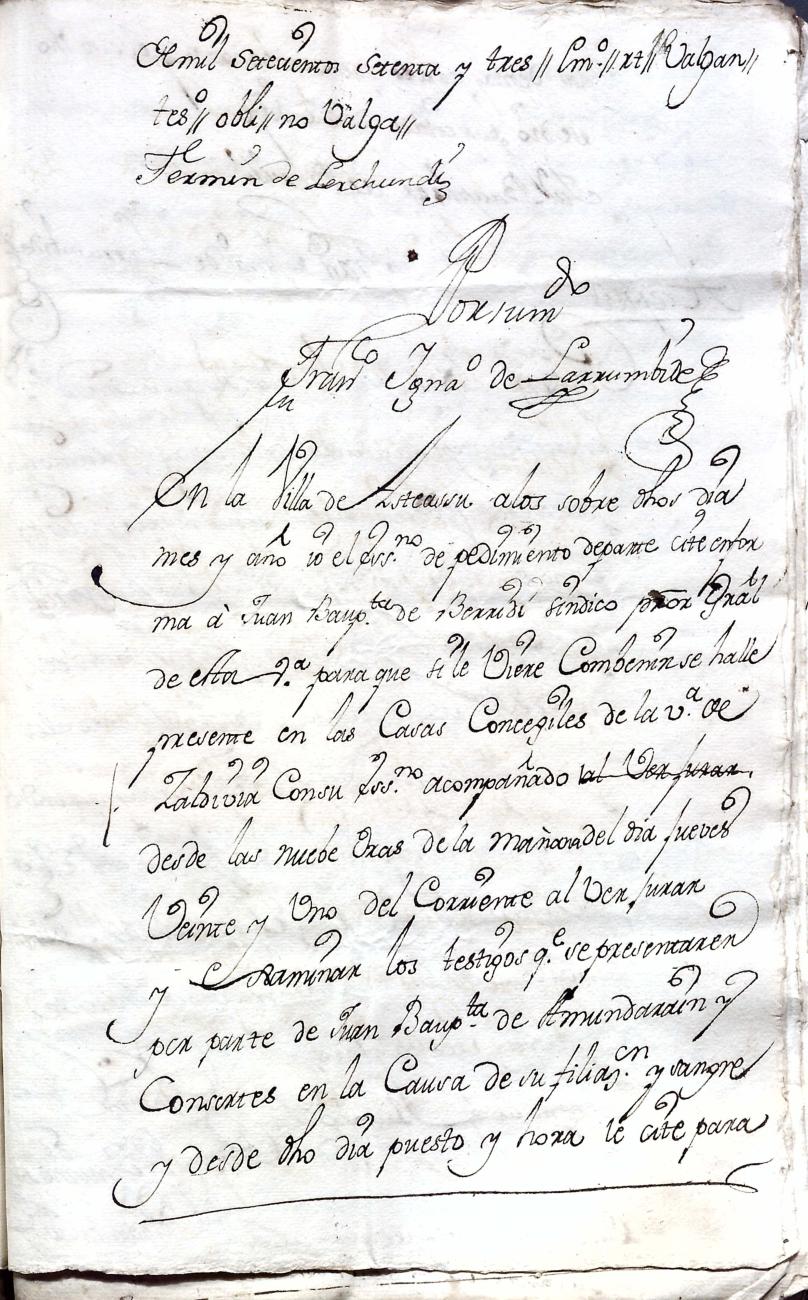 De mil setecientos setenta y tres // Em.º // rt // Valgan //
tes // obli // no Valga //
Fermin de Lerchundi
Por su m.do
Fran.co Igna.o de Larrumbide
En la Villa de Asteassu a los sobre dhos dia
mes y año io el Ess.no de pedimiento de parte cite en for
ma à Juan Baup.ta de Berridi sindico pror Gral
de esta v.a para que si le Viere Combenir se halle
presente en las Casas Concegiles de la v.a de
Zaldivia Con su Ess.no acompañado al Ver jurar
desde las nuebe Oras de la mañana del dia jueves
Veinte y Uno del Corriente al Ver jurar
y examinar los testigos q.e se presentaren
por parte de Juan Baup.ta de Amundarain y
Consortes en la Causa de su filiaz.on y sangre
y desde dho dia puesto y hora le cite para